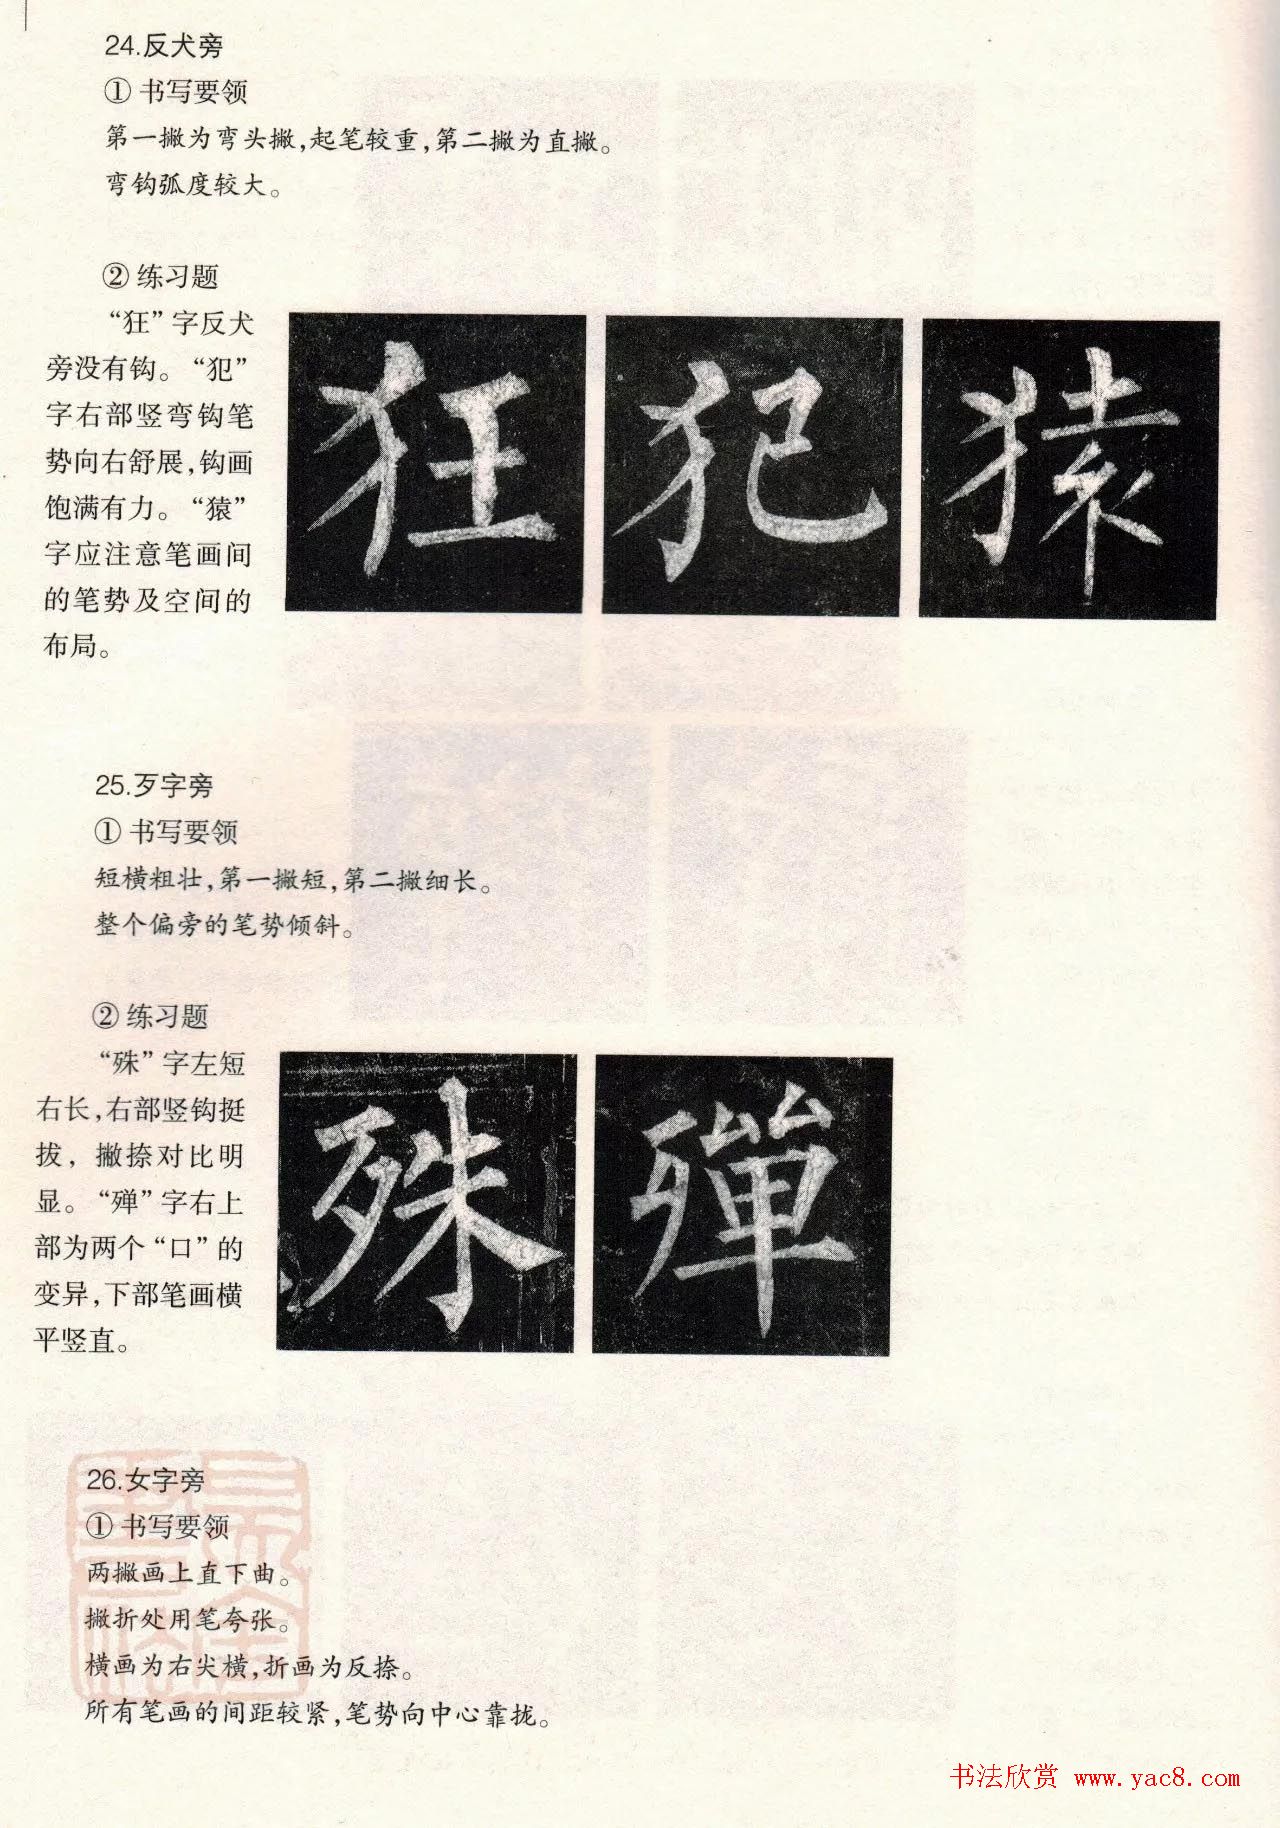 24.反犬旁
① 书写要领
第一撇为弯头撇,起笔较重,第二撇为直撇。
弯钩弧度较大。
② 练习题
“狂”字反犬
旁没有钩。“犯”
字右部竖弯钩笔
势向右舒展,钩画
饱满有力。“猿”
字应注意笔画间
的笔势及空间的
布局。
狂 犯 猿
25.歹字旁
① 书写要领
短横粗壮,第一撇短,第二撇细长。
整个偏旁的笔势倾斜。
② 练习题
“殊”字左短
右长,右部竖钩挺
拔,撇捺对比明
显。“殚”字右上
部为两个“口”的
变异,下部笔画横
平竖直。
殊 殫
26.女字旁
① 书写要领
两撇画上直下曲。
撇折处用笔夸张。
横画为右尖横,折画为反捺。
所有笔画的间距较紧,笔势向中心靠拢。
书法欣赏 www.yac8.com